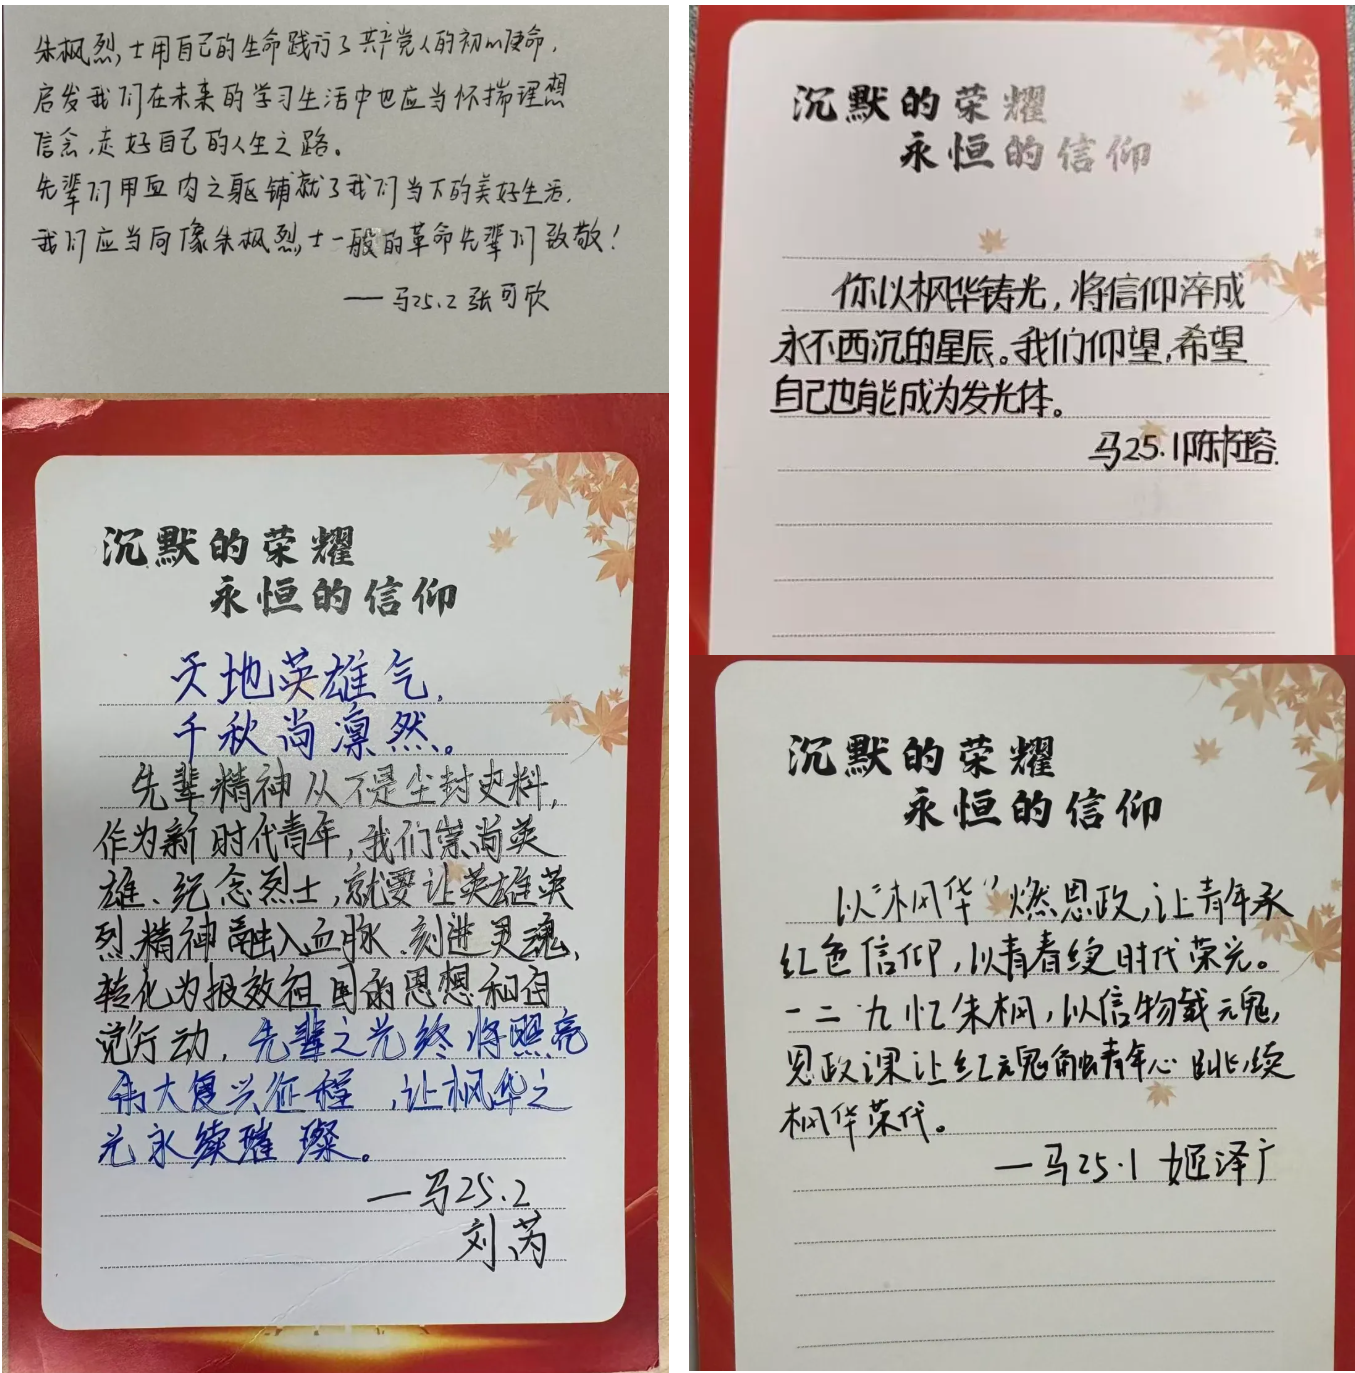 朱枫烈士用自己的生命践行了共产党人的初心使命，
启发我们在未来的学习生活中也应当怀揣理想
信念，走好自己的人生之路。
先辈们用血肉之躯铺就了我们当下的美好生活，
我们应当向像朱枫烈士一般的革命先辈们致敬！
——马25.2 张可欣
沉默的荣耀
永恒的信仰
天地英雄气，
千秋尚凛然。
先辈精神从不是尘封史料，
作为新时代青年，我们崇尚英
雄、纪念烈士，就要让英雄英
烈精神融入血脉、刻进灵魂，
转化为报效祖国的思想和自
觉行动，先辈之光终将照亮
伟大复兴征程，让枫华之
光永续璀璨。
——马25.2
刘芮
沉默的荣耀
永恒的信仰
你以枫华铸光，将信仰淬成
永不西沉的星辰。我们仰望，希望
自己也能成为发光体。
马25.1陈书瑢.
沉默的荣耀
永恒的信仰
以“枫华”燃思政，让青年承
红色信仰，以青春续时代荣光。
一二·九忆朱枫，以信物载元魂，
思政课让红魂融青年心跳，续
枫华荣代。
——马25.1 姬泽广